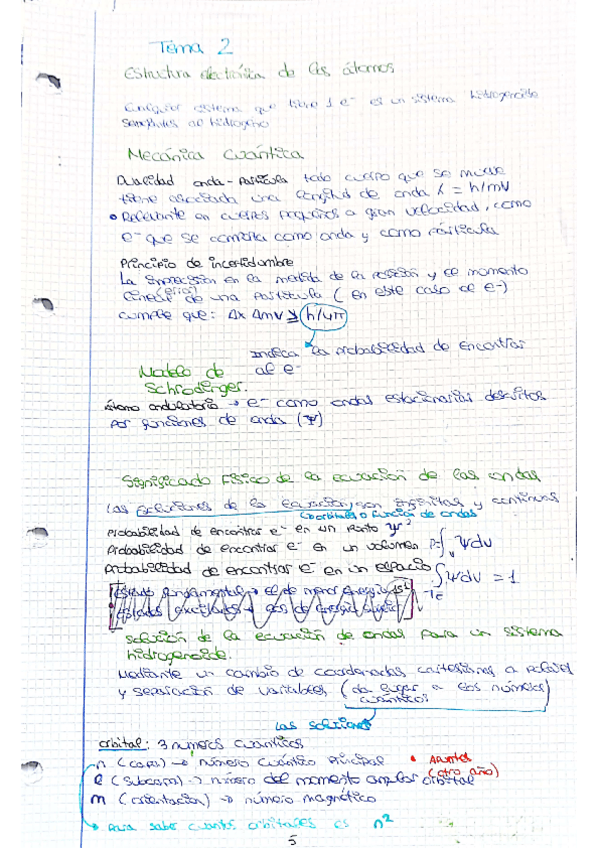 Tema 2
Estructura electrónica de los átomos
Cualquier sistema que tiene 1 e⁻ es un sistema hidrogenoide
semejantes al hidrógeno
Mecánica Cuántica
Dualidad onda-partícula todo cuerpo que se mueve
tiene asociada una longitud de onda λ = h/mV
• Relevante en cuerpos pequeños a gran velocidad, como
e⁻ que se comporta como onda y como partícula
Principio de incertidumbre
La imprecisión en la medida de la posición y el momento
(error)
lineal de una partícula (en este caso el e⁻)
cumple que: Δx Δmv ≥ h/4π
Indica la probabilidad de encontrar
al e⁻
Modelo de
Schrodinger.
átomo ondulatorio → e⁻ como ondas estacionarias descritos
por funciones de onda (Ψ)
Significado Físico de la ecuación de las ondas
Las soluciones de la ecuación son infinitas y continuas
(orbitales o función de ondas
Probabilidad de encontrar e⁻ en un punto Ψ²
Probabilidad de encontrar e⁻ en un volumen P=∫v Ψdv
Probabilidad de encontrar e⁻ en un espacio ∫Ψdv = 1
TE
Estado fundamental → el de menor energía
Estados excitados → de energía
Solución de la ecuación de ondas para un sistema
hidrogenoide.
Mediante un cambio de coordenadas cartesianas a polares
y separación de variables (da lugar a los números
cuánticos)
Las soluciones
orbital: 3 números cuánticos
n (capa) → número cuántico principal
• Apuntes
(otro año)
l (subcapa) → número del momento angular orbital
m (orientación) → número magnético
→ Para saber cuants orbitales es n²
5